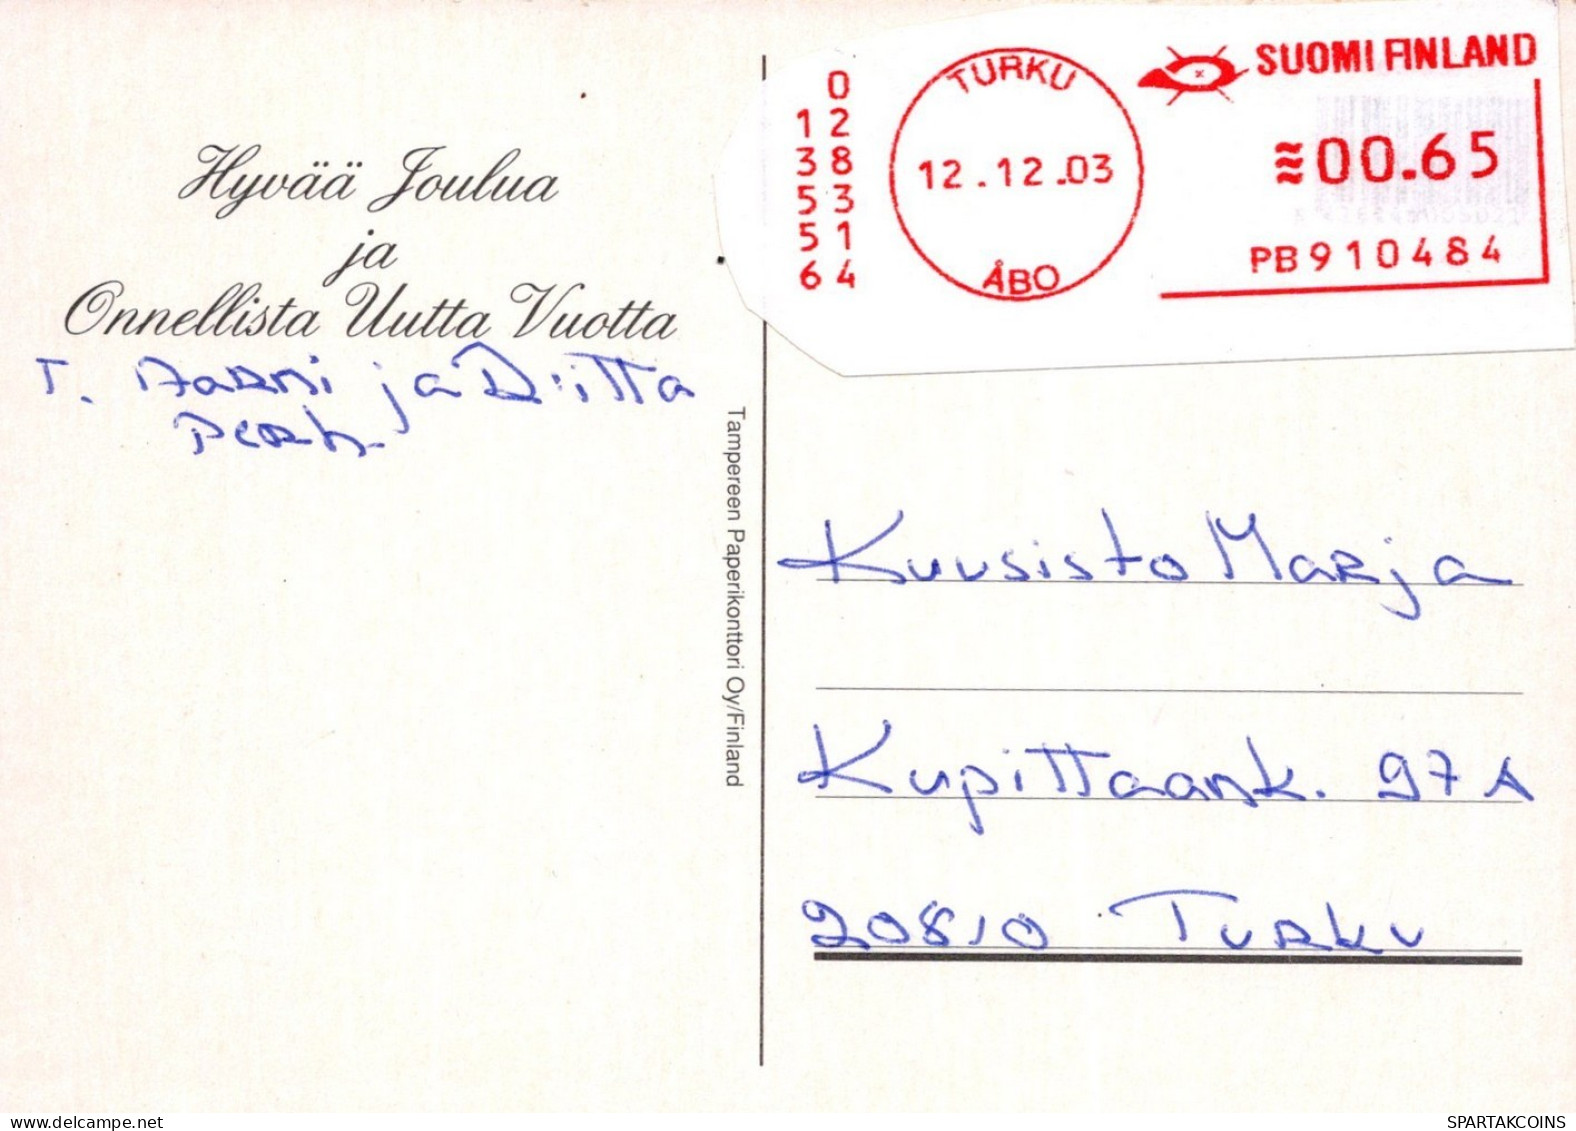 Hyvää Joulua
ja
Onnellista Uutta Vuotta
T. Aarni ja Riitta
Tampereen Paperikonttori Oy/Finland
0
1 2
3 8
5 3
5 1
6 4
TURKU
12.12.03
ÅBO
SUOMI FINLAND
00.65
PB910484
Kuusisto Marja
Kupittaank. 97 A
20810 Turku
SPARTAKCOINS